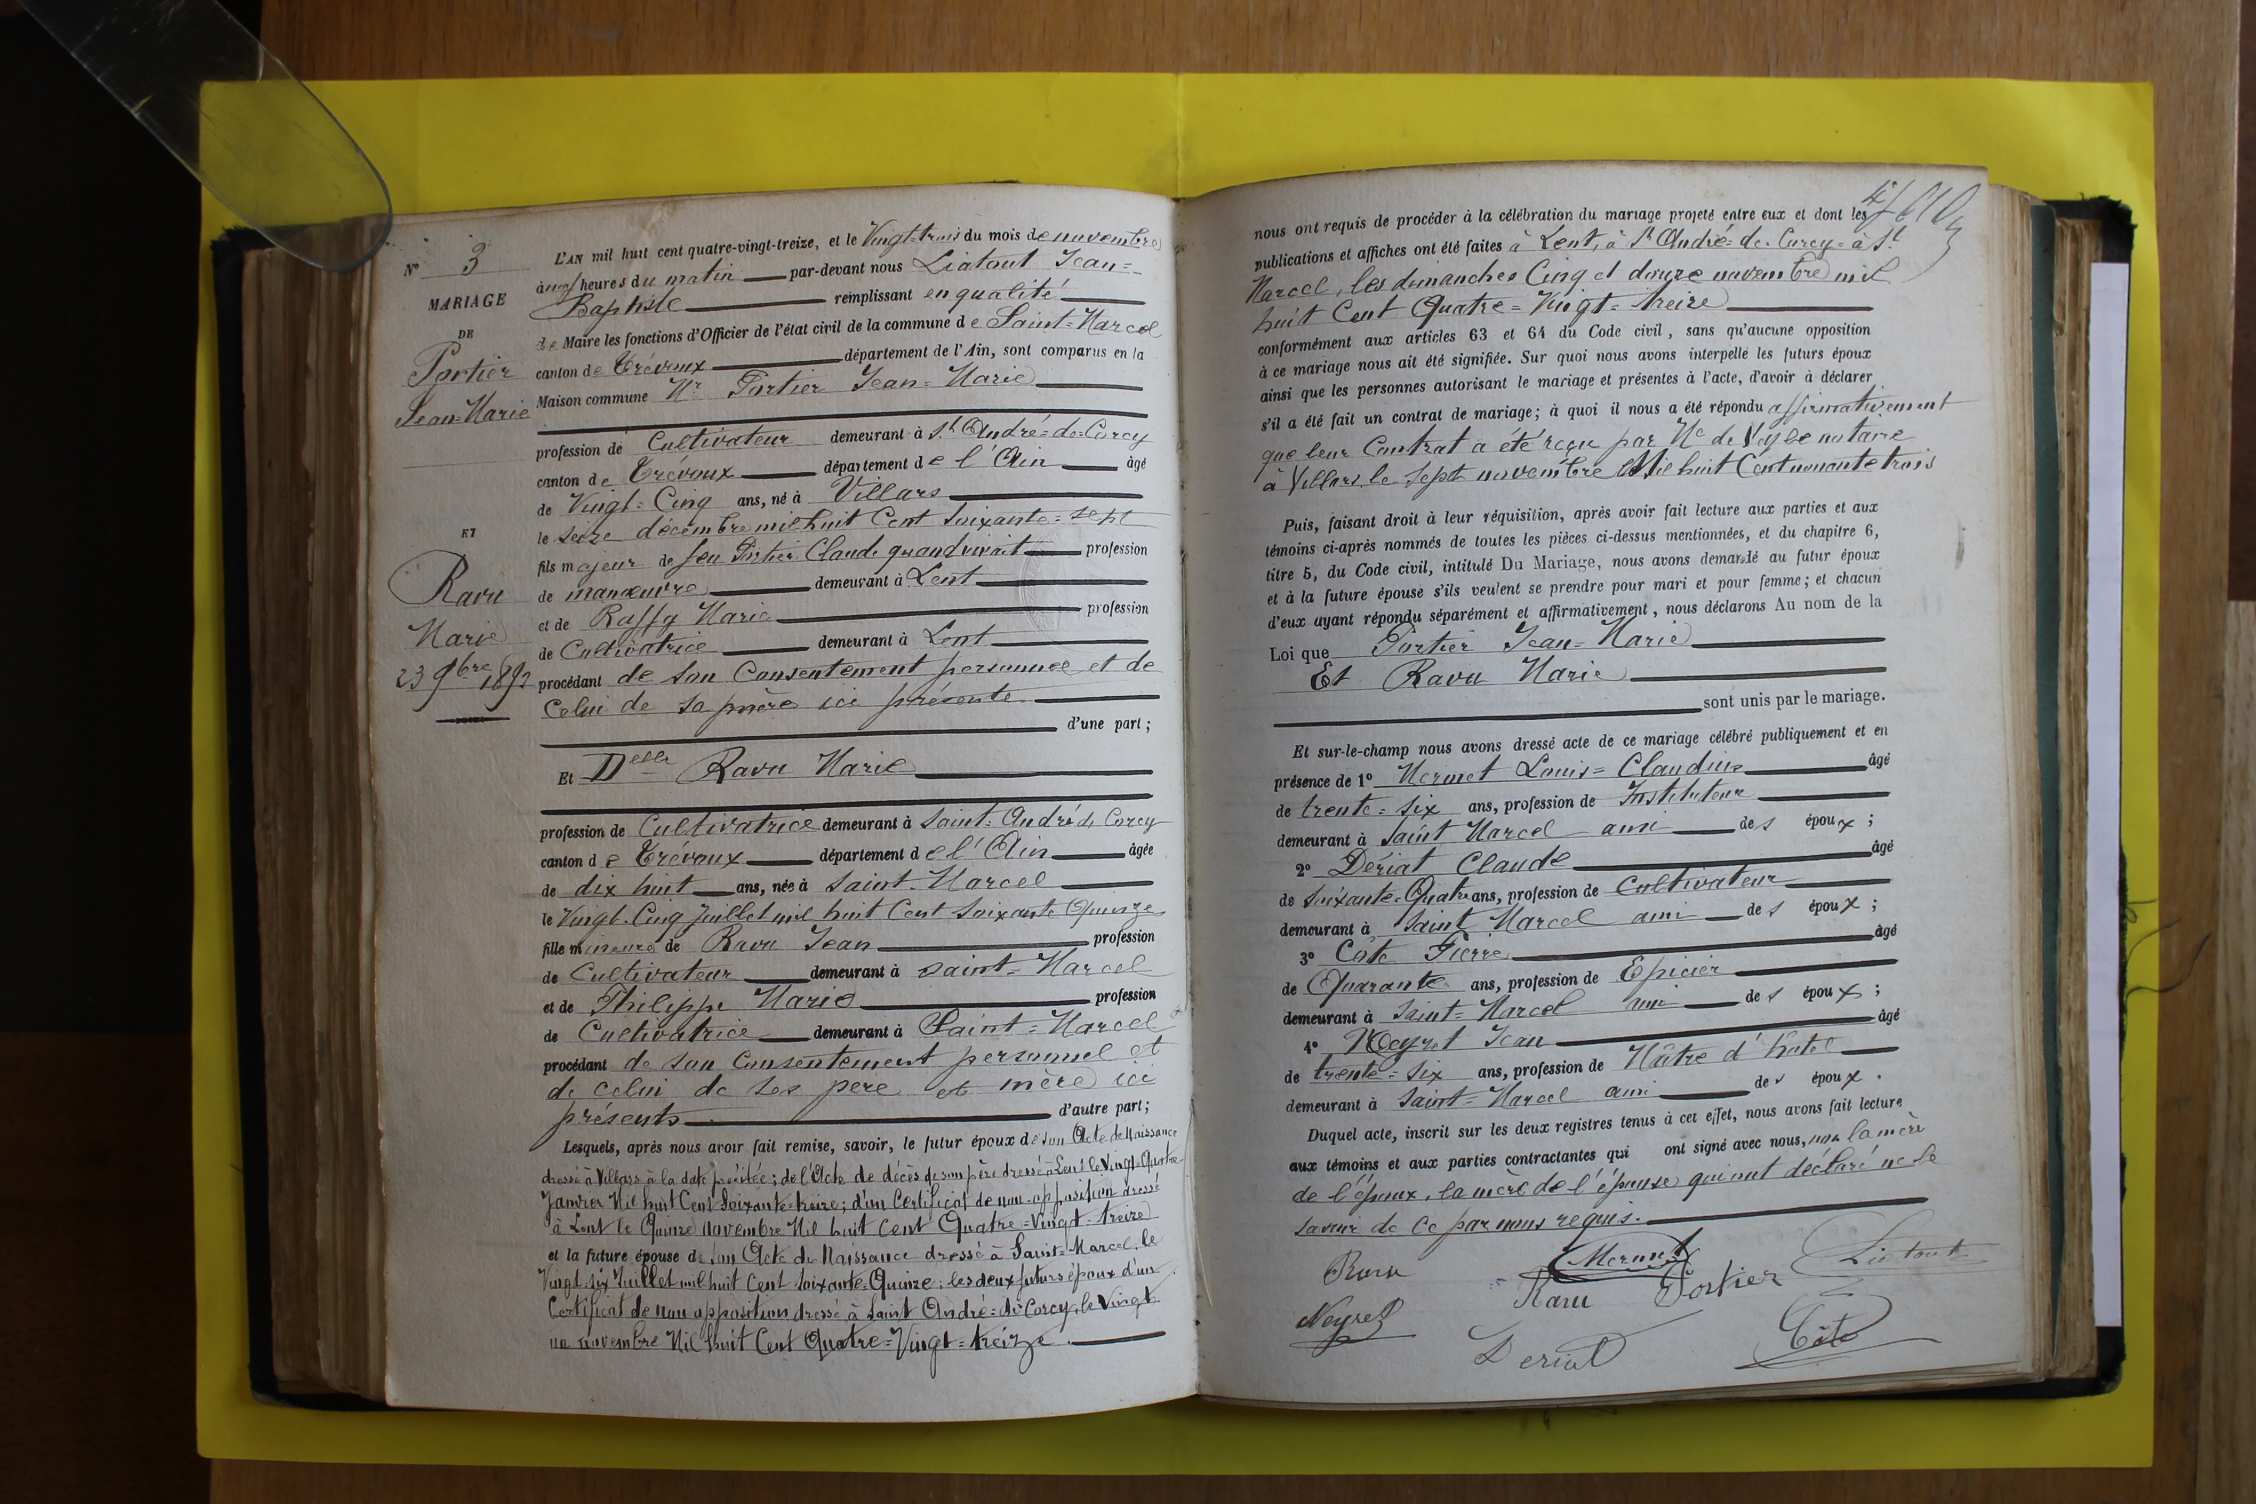 N° 3
MARIAGE
DE
Portier
Jean=Marie
ET
Ravu
Marie
23 9bre 1893
L'AN mil huit cent quatre-vingt-treize, et le Vingt-trois du mois de novembre
à neuf heures du matin par-devant nous Liatout Jean=
Baptiste remplissant en qualité
de Maire les fonctions d'Officier de l'état civil de la commune de Saint=Marcel
canton de Trévoux département de l'Ain, sont comparus en la
Maison commune Mr Portier Jean=Marie
profession de Cultivateur demeurant à St André=de=Corcy
canton de Trévoux département de l'Ain âgé
de Vingt=Cinq ans, né à Villars
le seize décembre mil huit Cent soixante=sept
fils majeur de feu Portier Claude quand vivait profession
de manœuvre demeurant à Lent
et de Raffy Marie profession
de Cultivatrice demeurant à Lent
procédant de son Consentement personnel et de
Celui de sa mère ici présente
d'une part;
Et Delle Ravu Marie
profession de Cultivatrice demeurant à Saint=André de Corcy
canton de Trévoux département de l'Ain âgée
de dix huit ans, née à Saint-Marcel
le Vingt-Cinq Juillet mil huit Cent Soixante Quinze
fille mineure de Ravu Jean profession
de Cultivateur demeurant à Saint=Marcel
et de Philippe Marie profession
de Cultivatrice demeurant à Saint=Marcel
procédant de son Consentement personnel et
de celui de ses père et mère ici
présents d'autre part;
Lesquels, après nous avoir fait remise, savoir, le futur époux de son Acte de Naissance
dressé à Villars à la date précitée; de l'Acte de décès de son père dressé à Lent le Vingt-Quatre
Janvier Mil huit Cent Soixante=treize; d'un Certificat de non-opposition dressé
à Lent le Quinze novembre Mil huit cent Quatre=Vingt=treize
et la future épouse de son Acte de Naissance dressé à Saint=Marcel, le
Vingt-six Juillet mil huit Cent soixante=Quinze; les deux futurs époux d'un
Certificat de non opposition dressé à Saint André=de Corcy, le Vingt
un novembre Mil huit Cent Quatre=Vingt=treize.
nous ont requis de procéder à la célébration du mariage projeté entre eux et dont les
publications et affiches ont été faites à Lent, à St André=de=Corcy=à St
Marcel, les dimanches Cinq et douze novembre mil
huit Cent Quatre=Vingt=treize
conformément aux articles 63 et 64 du Code civil, sans qu'aucune opposition
à ce mariage nous ait été signifiée. Sur quoi nous avons interpellé les futurs époux
ainsi que les personnes autorisant le mariage et présentes à l'acte, d'avoir à déclarer
s'il a été fait un contrat de mariage; à quoi il nous a été répondu affirmativement
que leur Contrat a été reçu par Me de Veyle notaire
à Villars, le sept novembre Mil huit Cent nonante trois
Puis, faisant droit à leur réquisition, après avoir fait lecture aux parties et aux
témoins ci-après nommés de toutes les pièces ci-dessus mentionnées, et du chapitre 6,
titre 5, du Code civil, intitulé Du Mariage, nous avons demandé au futur époux
et à la future épouse s'ils veulent se prendre pour mari et pour femme; et chacun
d'eux ayant répondu séparément et affirmativement, nous déclarons Au nom de la
Loi que Portier Jean=Marie
Et Ravu Marie
sont unis par le mariage.
Et sur-le-champ nous avons dressé acte de ce mariage célébré publiquement et en
présence de 1° Mermet Louis=Claudius âgé
de trente=six ans, profession de Instituteur
demeurant à Saint Marcel ami des époux;
2° Dériat Claude âgé
de soixante-Quatre ans, profession de Cultivateur
demeurant à Saint Marcel ami des époux;
3° Côte Pierre âgé
de Quarante ans, profession de Epicier
demeurant à Saint=Marcel ami des époux;
4° Neyret Jean âgé
de trente=six ans, profession de Maître d'hôtel
demeurant à Saint=Marcel ami des époux.
Duquel acte, inscrit sur les deux registres tenus à cet effet, nous avons fait lecture
aux témoins et aux parties contractantes qui ont signé avec nous, non la mère
de l'époux, la mère de l'épouse qui ont déclaré ne le
savoir de ce par nous requis.
Ravu Mermet Liatout
Ravu Portier
Neyret
Deriat Côte